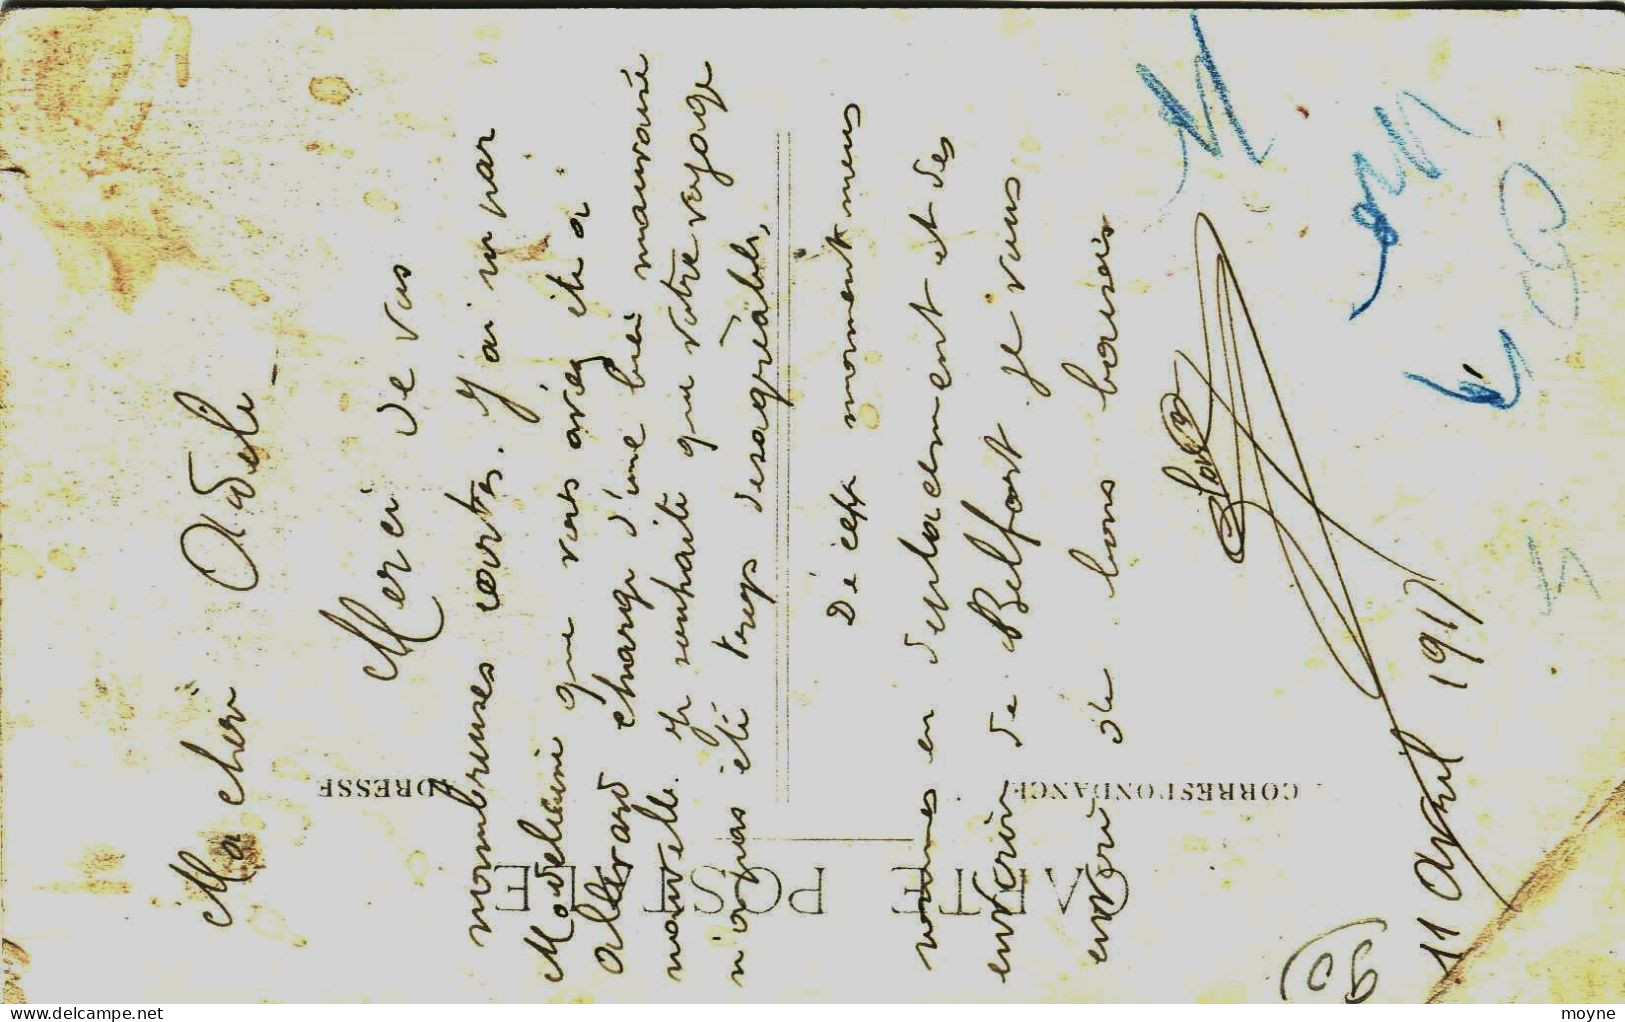 Ma cher Adèle -
Merci de vos
nombreuses cartes. J'ai su par
Madelaine que vous aviez été a
Allevard chargé d'une bien mauvaise
nouvelle je souhaite que votre voyage
n'a pas été trop desagréable,
Dé ce moment nous
sommes en deplacement et des
environ de Belfort je vous
envoie de bons baisers
11 Avril 1917
CARTE POSTALE
CORRESPONDANCE
ADRESSE
90
delcampe.net
moyne